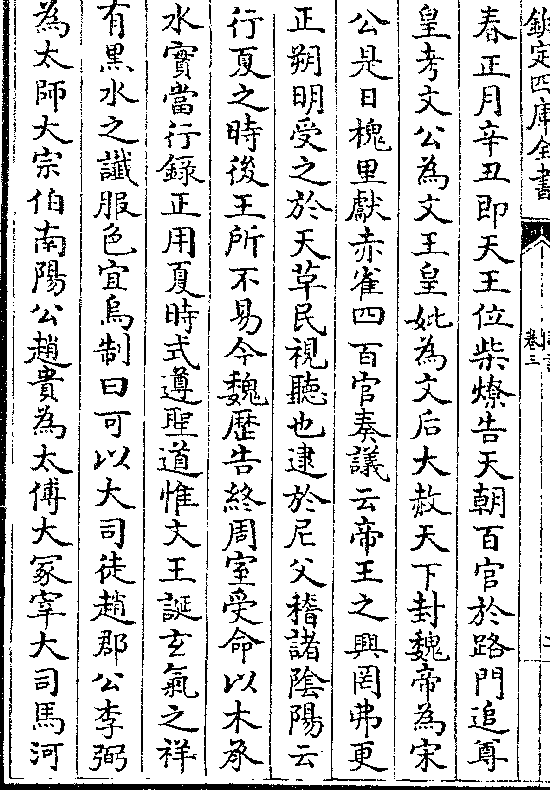 欽定四庫全書
卷三
春正月辛丑即天王位柴燎告天朝百官於路門追尊
皇考文公為文王皇妣為文后大赦天下封魏帝為宋
公是日槐里獻赤雀四百官奏議云帝王之興罔弗更
正朔明受之於天草民視聽也逮於尼父稽諸陰陽云
行夏之時後王所不易今魏歷告終周室受命以木承
水實當行錄正用夏時式遵聖道惟文王誕玄氣之祥
有黑水之讖服色宜烏制曰可以大司徒趙郡公李弼
為太師大宗伯南陽公趙貴為太傅大冢宰大司馬河